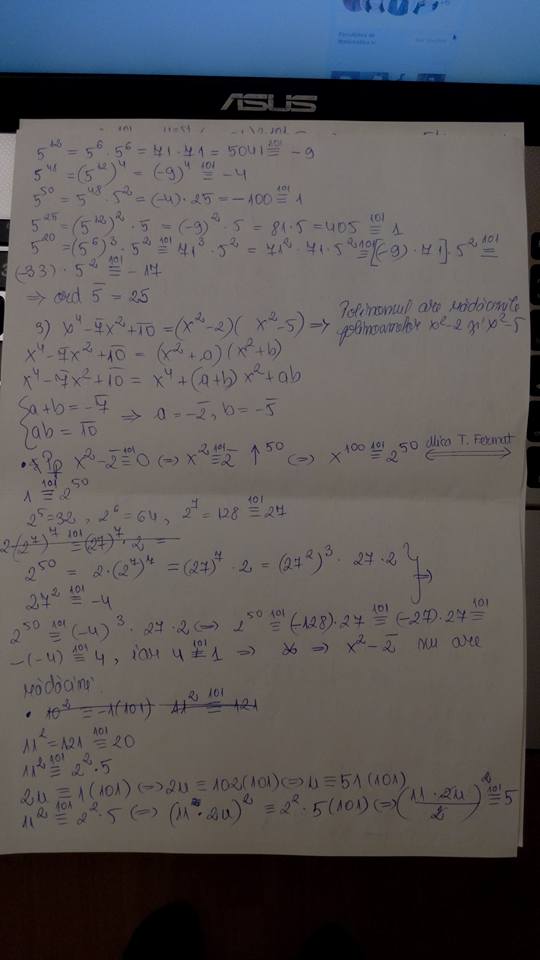 ASUS
5^12 = 5^6 · 5^6 = 71 · 71 = 5041 ≡^101 -9
5^41 = (5^12)^4 = (-9)^4 ≡^101 -4
5^50 = 5^48 · 5^2 = (-4) · 25 = -100 ≡^101 1
5^25 = (5^12)^2 · 5 = (-9)^2 · 5 = 81 · 5 = 405 ≡^101 1
5^20 = (5^6)^3 · 5^2 ≡^101 71^3 · 5^2 = 71^2 · 71 · 5^2 ≡^101 [(-9) · 71] · 5^2 ≡^101
(-33) · 5^2 ≡^101 -17
⇒ ord 5̄ = 25
3) x^4 - 7̄x^2 + 10̄ = (x^2 - 2)(x^2 - 5) ⇒ Polinomul are rădăcinile
polinoamelor x^2 - 2 și x^2 - 5
x^4 - 7̄x^2 + 10̄ = (x^2 + a)(x^2 + b)
x^4 - 7̄x^2 + 10̄ = x^4 + (a+b)x^2 + ab
{ a+b = -7̄
ab = 10̄ ⇒ a = -2̄, b = -5̄
• Pp x^2 - 2̄ ≡^101 0 ⇔ x^2 ≡^101 2̄ ↑^50 ⇔ x^100 ≡^101 2^50 Mica T. Fermat ⇔
1 ≡^101 2^50
2^5 = 32, 2^6 = 64, 2^7 = 128 ≡^101 27
2·(2^7)^7 ≡^101 (27)^7 · 2 =
2^50 = 2 · (2^7)^7 = (27)^7 · 2 = (27^2)^3 · 27 · 2 } ⇒
27^2 ≡^101 -4
2^50 ≡^101 (-4)^3 · 27 · 2 ⇔ 2^50 ≡^101 (-128) · 27 ≡^101 (-27) · 27 ≡^101
-(-4) ≡^101 4, iar 4 ≢^101 1 ⇒ ⇒ x^2 - 2̄ nu are
rădăcini
• 10^2 ≡ -1(101) 11^2 ≡^101 121
11^2 = 121 ≡^101 20
11^2 ≡^101 2^2 · 5
2u ≡ 1(101) ⇔ 2u ≡ 102(101) ⇔ u ≡ 51(101)
11^2 ≡^101 2^2 · 5 ⇔ (11 · 2u)^2 ≡ 2^2 · 5(101) ⇔ (11 · 2u / 2)^2 ≡^101 5